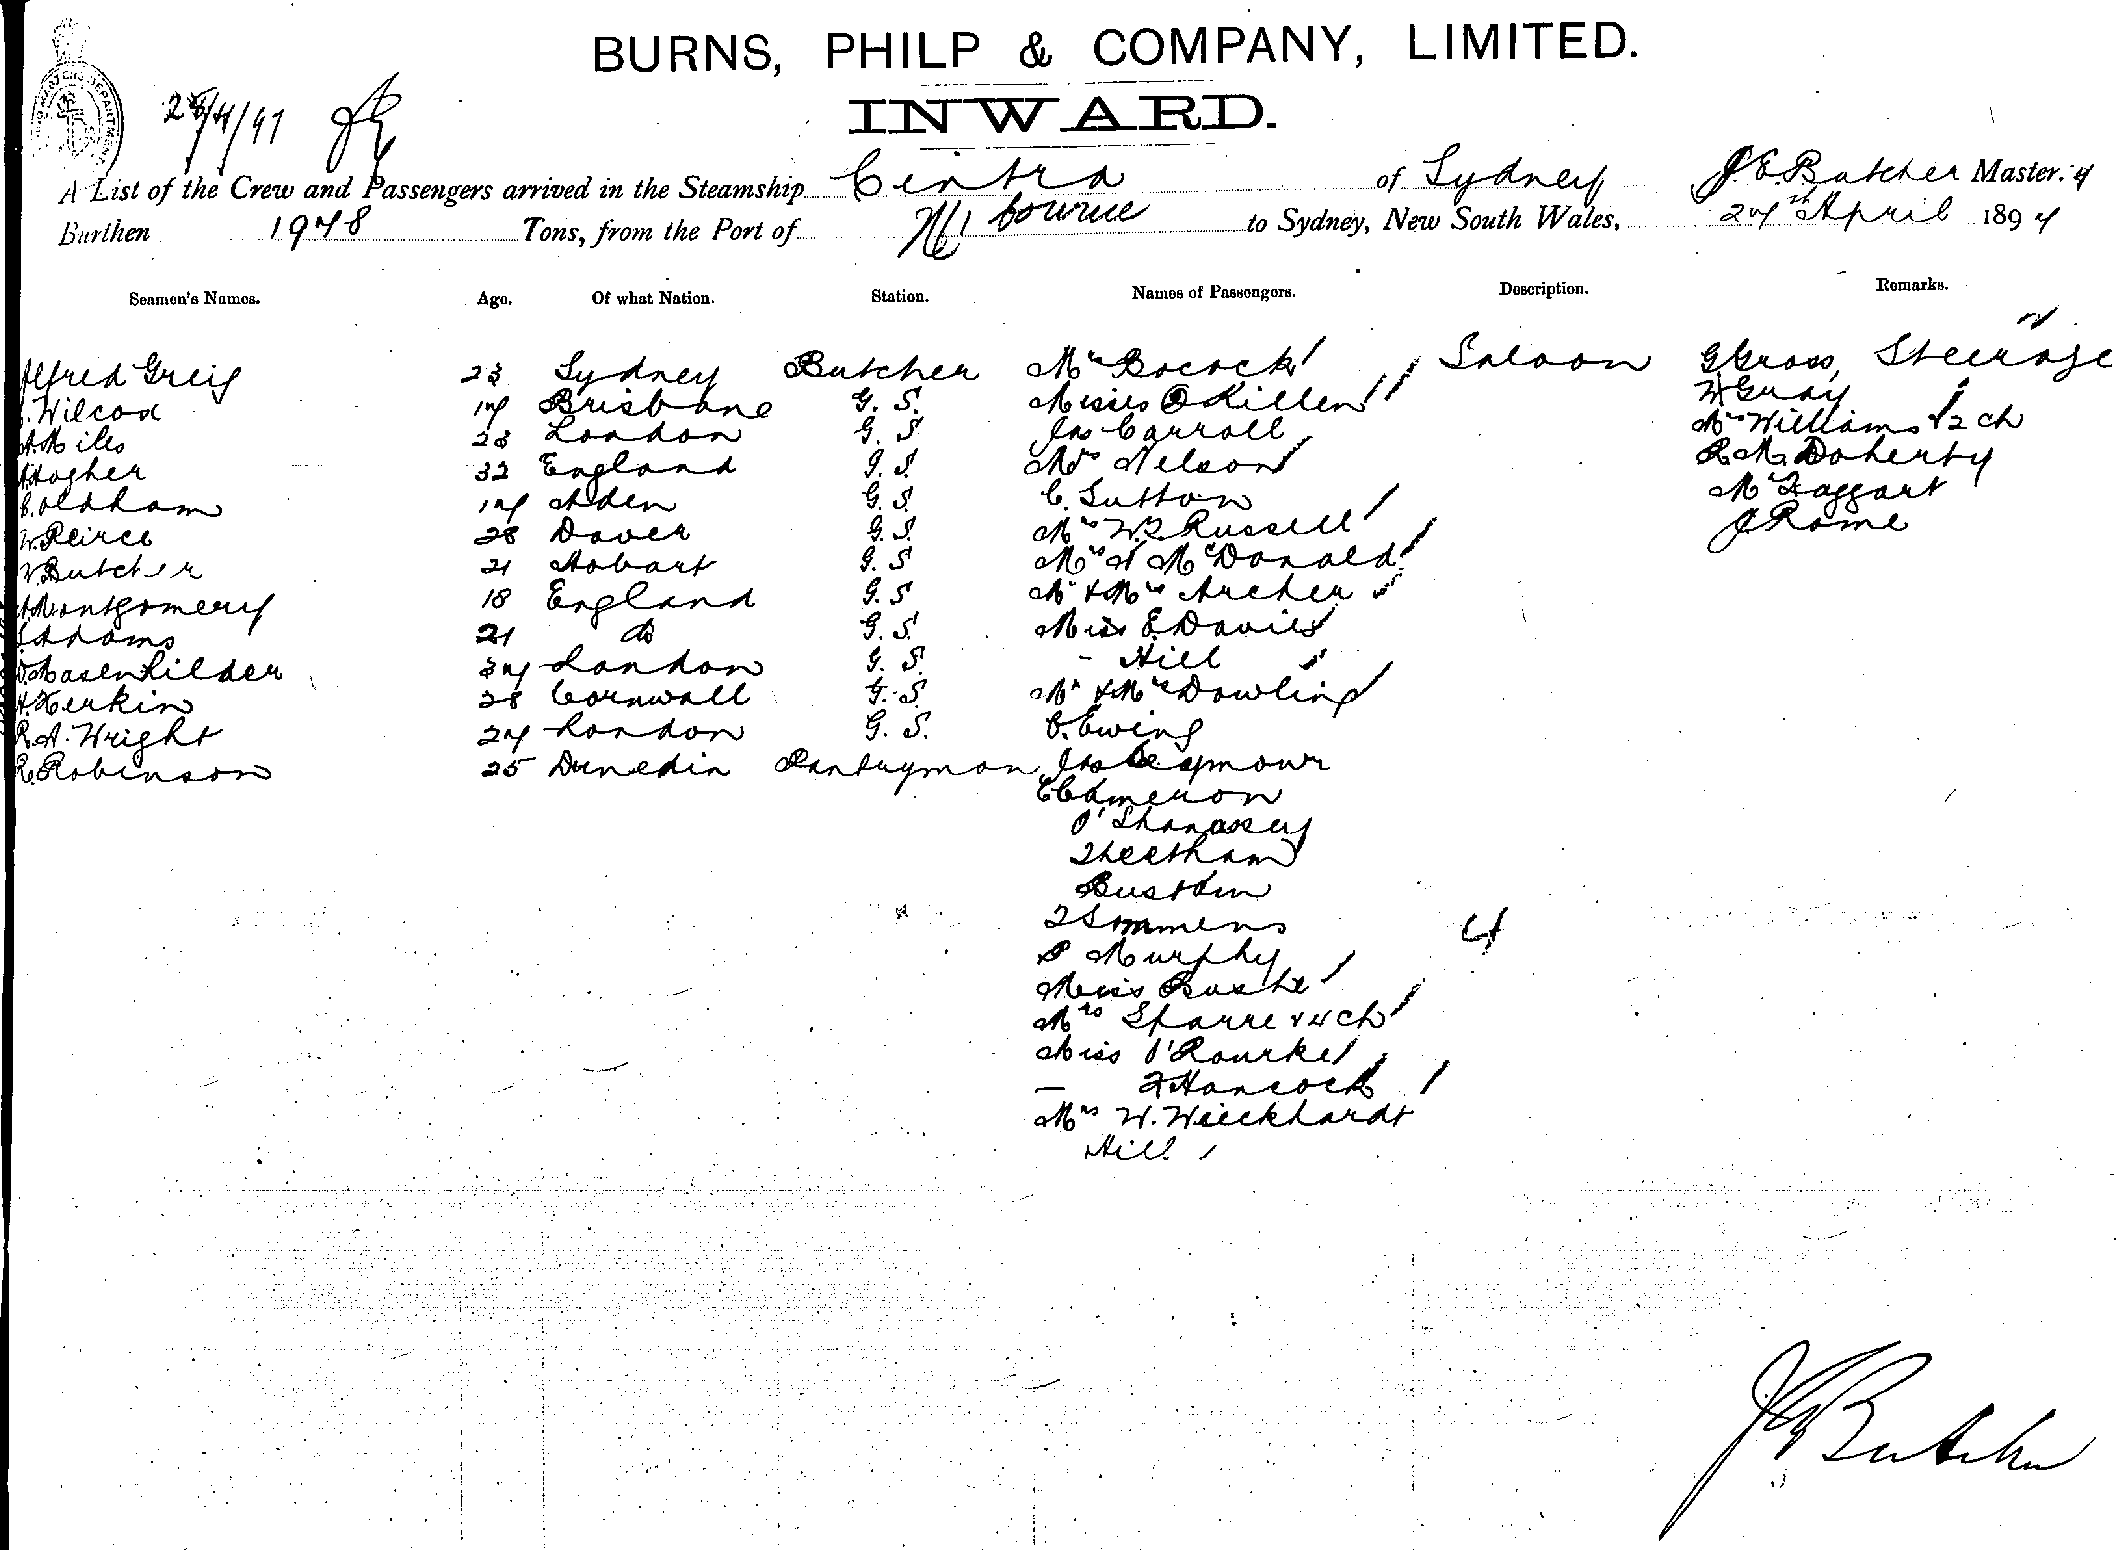 BURNS, PHILP & COMPANY, LIMITED.
INWARD.
28/4/97
A List of the Crew and Passengers arrived in the Steamship Cintra of Sydney J. E. Butcher Master.
Burthen 1978 Tons, from the Port of Melbourne to Sydney, New South Wales, 27th April 1897
Seamen's Names. Age. Of what Nation. Station. Names of Passengers. Description. Remarks.
Alfred Greig 23 Sydney Butcher Mrs Bocock Saloon G Gross, Steerage
Wilcox 17 Brisbane G. S. Misses O Killen W Guay
A. Miles 23 London G. S Jas Carroll Mrs Williams & 2 ch
32 England G. S. Mrs Nelson R. Mc Doherty
C. Oldham 17 Aden G. S. C. Sutton McTaggart
W. Peirce 28 Dover G. S. Mrs W. Russell J Rome
Butcher 21 Hobart G. S Mrs McDonald
A. Montgomery 18 England G. S Mr & Mrs Archer
Adams 21 do G. S. Miss E. Davies
37 London G. S. - Hill
H. Kerkin 28 Cornwall G. S. Mr & Mrs Dowling
R. A. Wright 27 London G. S. C. Ewing
R. Robinson 25 Dunedin Pantryman Jas Seymour
E Cameron
O'Shanassy
Cheetham
Bustin
Simmens
P Murphy
Miss Bushe
Mrs Sparre & 4 ch
Miss O'Rourke
— F Hancock
Mrs W. Wieckhardt
Hill
J E Butcher